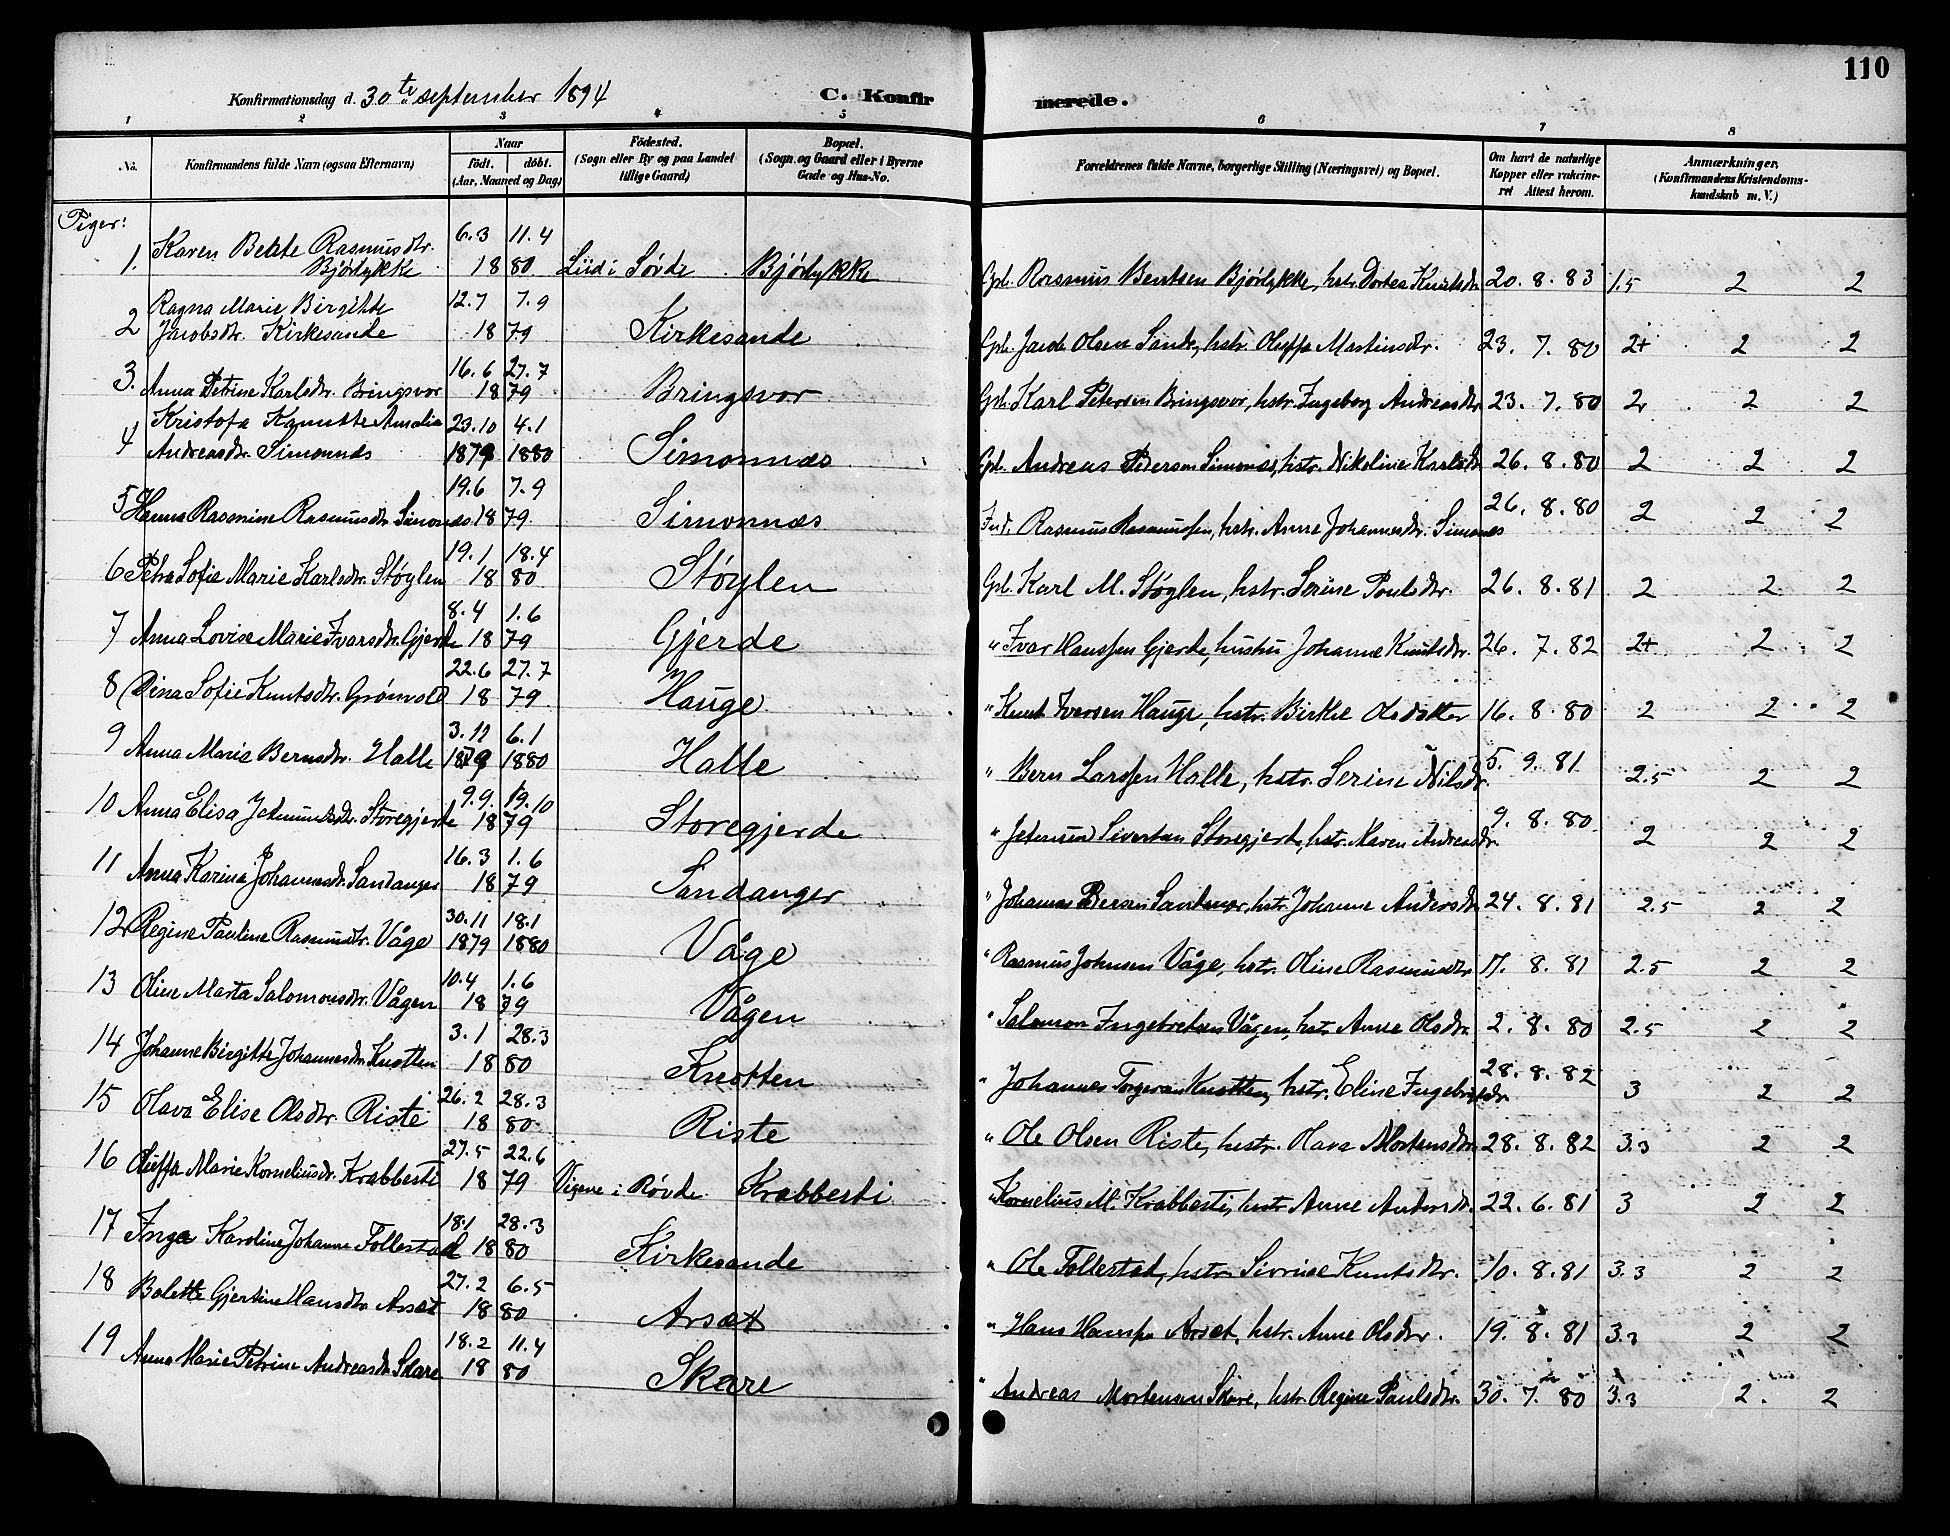 110
Konfirmationsdag d. 30te september 1894 C. Konfirmerede.
1 2 3 4 5 6 7 8
No. Konfirmandens fulde Navn (ogsaa Efternavn) Naar födt. döbt. (Aar, Maaned og Dag) Födested. (Sogn eller By og paa Landet tillige Gaard) Bopæl. (Sogn og Gaard eller i Byerne Gade og Hus-No. Forældrenes fulde Navne, borgerlige Stilling (Næringsvei) og Bopæl. Om havt de naturlige Kopper eller vakcineret Attest herom. Anmærkninger. (Konfirmandens Kristendomskundskab m. V.)
Piger:
1. Karen Beate Rasmusdtr. Bjørlykke 6.3 11.4 1880 Liid i Søvde Bjørlykke Gbr. Rasmus Bentsen Bjørlykke, hstr. Dortea Knutsdtr. 20. 8. 83 1.5 2 2
2 Ragna Marie Birgitte Jacobsdtr. Kirkesande 12.7 7.9 1879 Kirkesande Gbr. Jacob Olsen Sande, hstr. Oluffa Martinsdtr. 23. 7. 80 2+ 2 2
3. Anna Petrine Karlsdtr. Bringsvor 16.6 27.7 1879 Bringsvor Gbr. Karl Petersen Bringsvor, hstr. Ingeborg Andreasdtr 23. 7. 80 2 2 2
4 Kristofa Knutte Amalia Andreasdtr. Simonnes 23.10 4.1 1879 1880 Simonnæs Gbr. Andreas Petersen Simones, hstr. Nikoline Karlsdtr 26. 8. 80 2 2 2
5 Hanna Rasmine Rasmusdtr. Simonæs 19.6 7.9 1879 Simonnæs Ind. Rasmus Rasmussen, hstr. Anne Johannesdtr. Simones 26. 8. 80 2 2 2
6 Petra Sofie Marie Karlsdtr. Støylen 19.1 18.4 1880 Støylen Gbr. Karl M. Støylen, hstr. Serine Poulsdtr. 26. 8. 81 2 2 2
7 Anna Lovise Marie Ivarsdtr. Gjerde 8.4 1.6 1879 Gjerde " Ivar Hanssen Gjerde, hustru Johanne Knutsdtr. 26. 7. 82 2+ 2 2
8 Dina Sofie Knutsdtr. Grønvold 22.6 27.7 1879 Hauge " Knut Iversen Hauge, hstr. Birtie Olsdotter 16. 8. 80 2 2 2
9 Anna Marie Bernsdtr. Halle 3.11 6.1 1879 1880 Halle " Bern Larssen Halle, hstr. Serine Nilsdtr. 5. 9. 81 2.5 2 2
10 Anna Elisa Jetmundsdtr. Storegjerde 9.9. 19.10 1879 Storegjerde " Jetmund Sivertsen Storegjerde, hstr. Maren Andreasdtr. 9. 8. 80 2 2 2
11 Anna Karina Johannesdtr. Sandanger 16.3 1.6 1879 Sandanger " Johannes Petersen Sandanger, hstr. Johanne Andersdtr. 24. 8. 81 2.5 2 2
12 Regine Pauline Rasmusdtr. Våge 30.11 18.1 1879 1880 Våge " Rasmus Johnsen Våge, hstr. Oline Rasmusdtr 17. 8. 81 2.5 2 2
13 Oline Marta Salomonsdtr. Vågen 10.4 1.6 1879 Vågen " Salomon Ingebretsen Vågen, hstr. Anne Olsdtr. 2. 8. 80 2.5 2 2
14 Johanne Birgitte Johannesdtr. Knotten 3.1 28.3 1880 Knotten " Johannes Torgersen Knotten, hstr. Eline Ingebrigtsdtr. 28. 8. 82 3 2 2
15 Olava Elise Olsdtr. Riste 26.2 28.3 1880 Riste " Ole Olsen Riste, hustr. Olava Mortensdtr. 28. 8. 82 3.3 2 2
16 Oluffa Marie Korneliusdtr. Krabbesti 27.5 22.6 1879 Vigene i Røvde Krabbesti " Kornelius M. Krabbesti, hustr Anne Andersdtr. 22. 6. 81 3 2 2
17 Inga Karoline Johanne Follestad 18.1 28.3 1880 Kirkesande " Ole Follestad, hstr. Sivrine Knutsdtr. 10. 8. 81 3.3 2 2
18 Bolette Gjertine Hansdtr Arset 27.2 6.5 1880 Arsæt " Hans Hanssen Arset, hstr. Anne Olsdtr. 19. 8. 81 3.3 2 2
19 Anna Marie Petrine Andreasdtr. Skare 18.2 11.4 1880 Skare " Andreas Mortensen Skare, hstr. Regine Paulsdtr. 30. 7. 80 3.3 2. 2